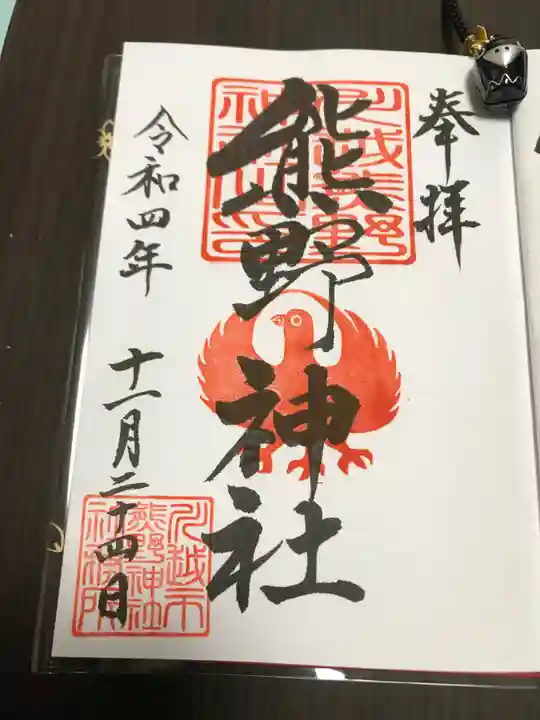 奉拝
川越熊野
神社之印
熊野神社
令和四年
十一月二十四日
川越市
熊野神社
社務所